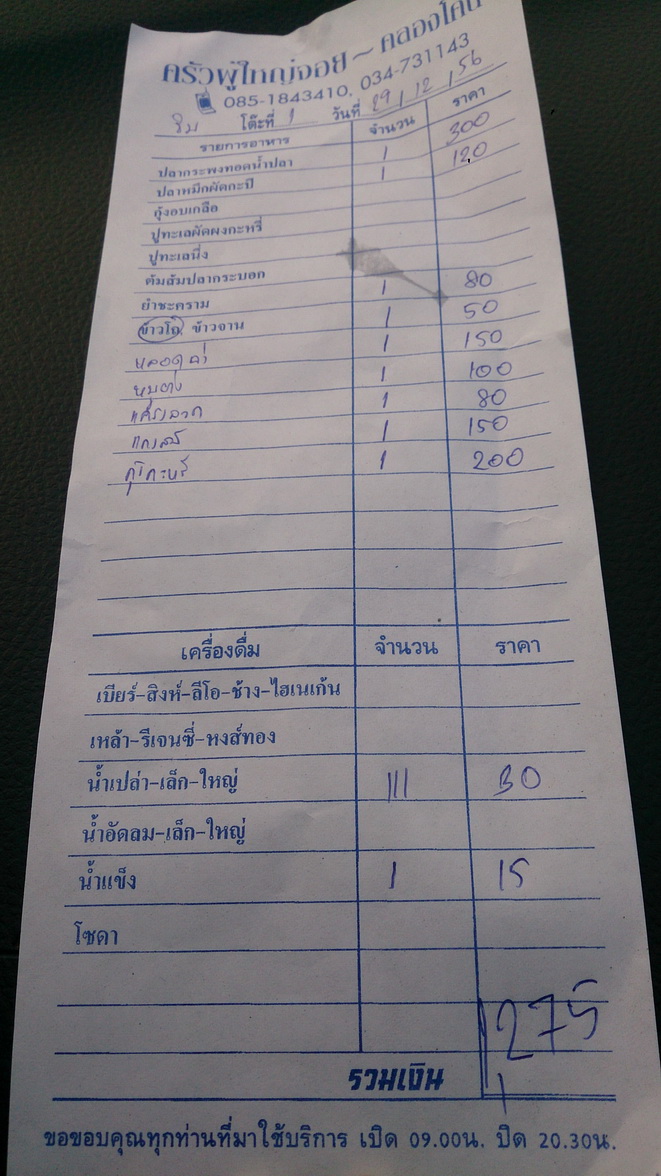 ครัวผู้ใหญ่จอย ~ คลองโคน
085-1843410, 034-731143
โต๊ะที่ 1 วันที่ 29 / 12 / 56
รายการอาหาร จำนวน ราคา
ปลากระพงทอดน้ำปลา 1 300
ปลาหมึกผัดกะปิ 1 120
กุ้งอบเกลือ
ปูทะเลผัดผงกะหรี่
ปูทะเลนึ่ง
ต้มส้มปลากระบอก
ยำชะคราม 1 80
ข้าวโถ, ข้าวจาน 1 50
หลอดฉ่า 1 150
1 100
1 80
1 150
1 200
เครื่องดื่ม จำนวน ราคา
เบียร์-สิงห์-ลีโอ-ช้าง-ไฮเนเก้น
เหล้า-รีเจนซี่-หงส์ทอง
น้ำเปล่า-เล็ก-ใหญ่ III 30
น้ำอัดลม-เล็ก-ใหญ่
น้ำแข็ง 1 15
โซดา
1275
รวมเงิน
ขอขอบคุณทุกท่านที่มาใช้บริการ เปิด 09.00น. ปิด 20.30น.